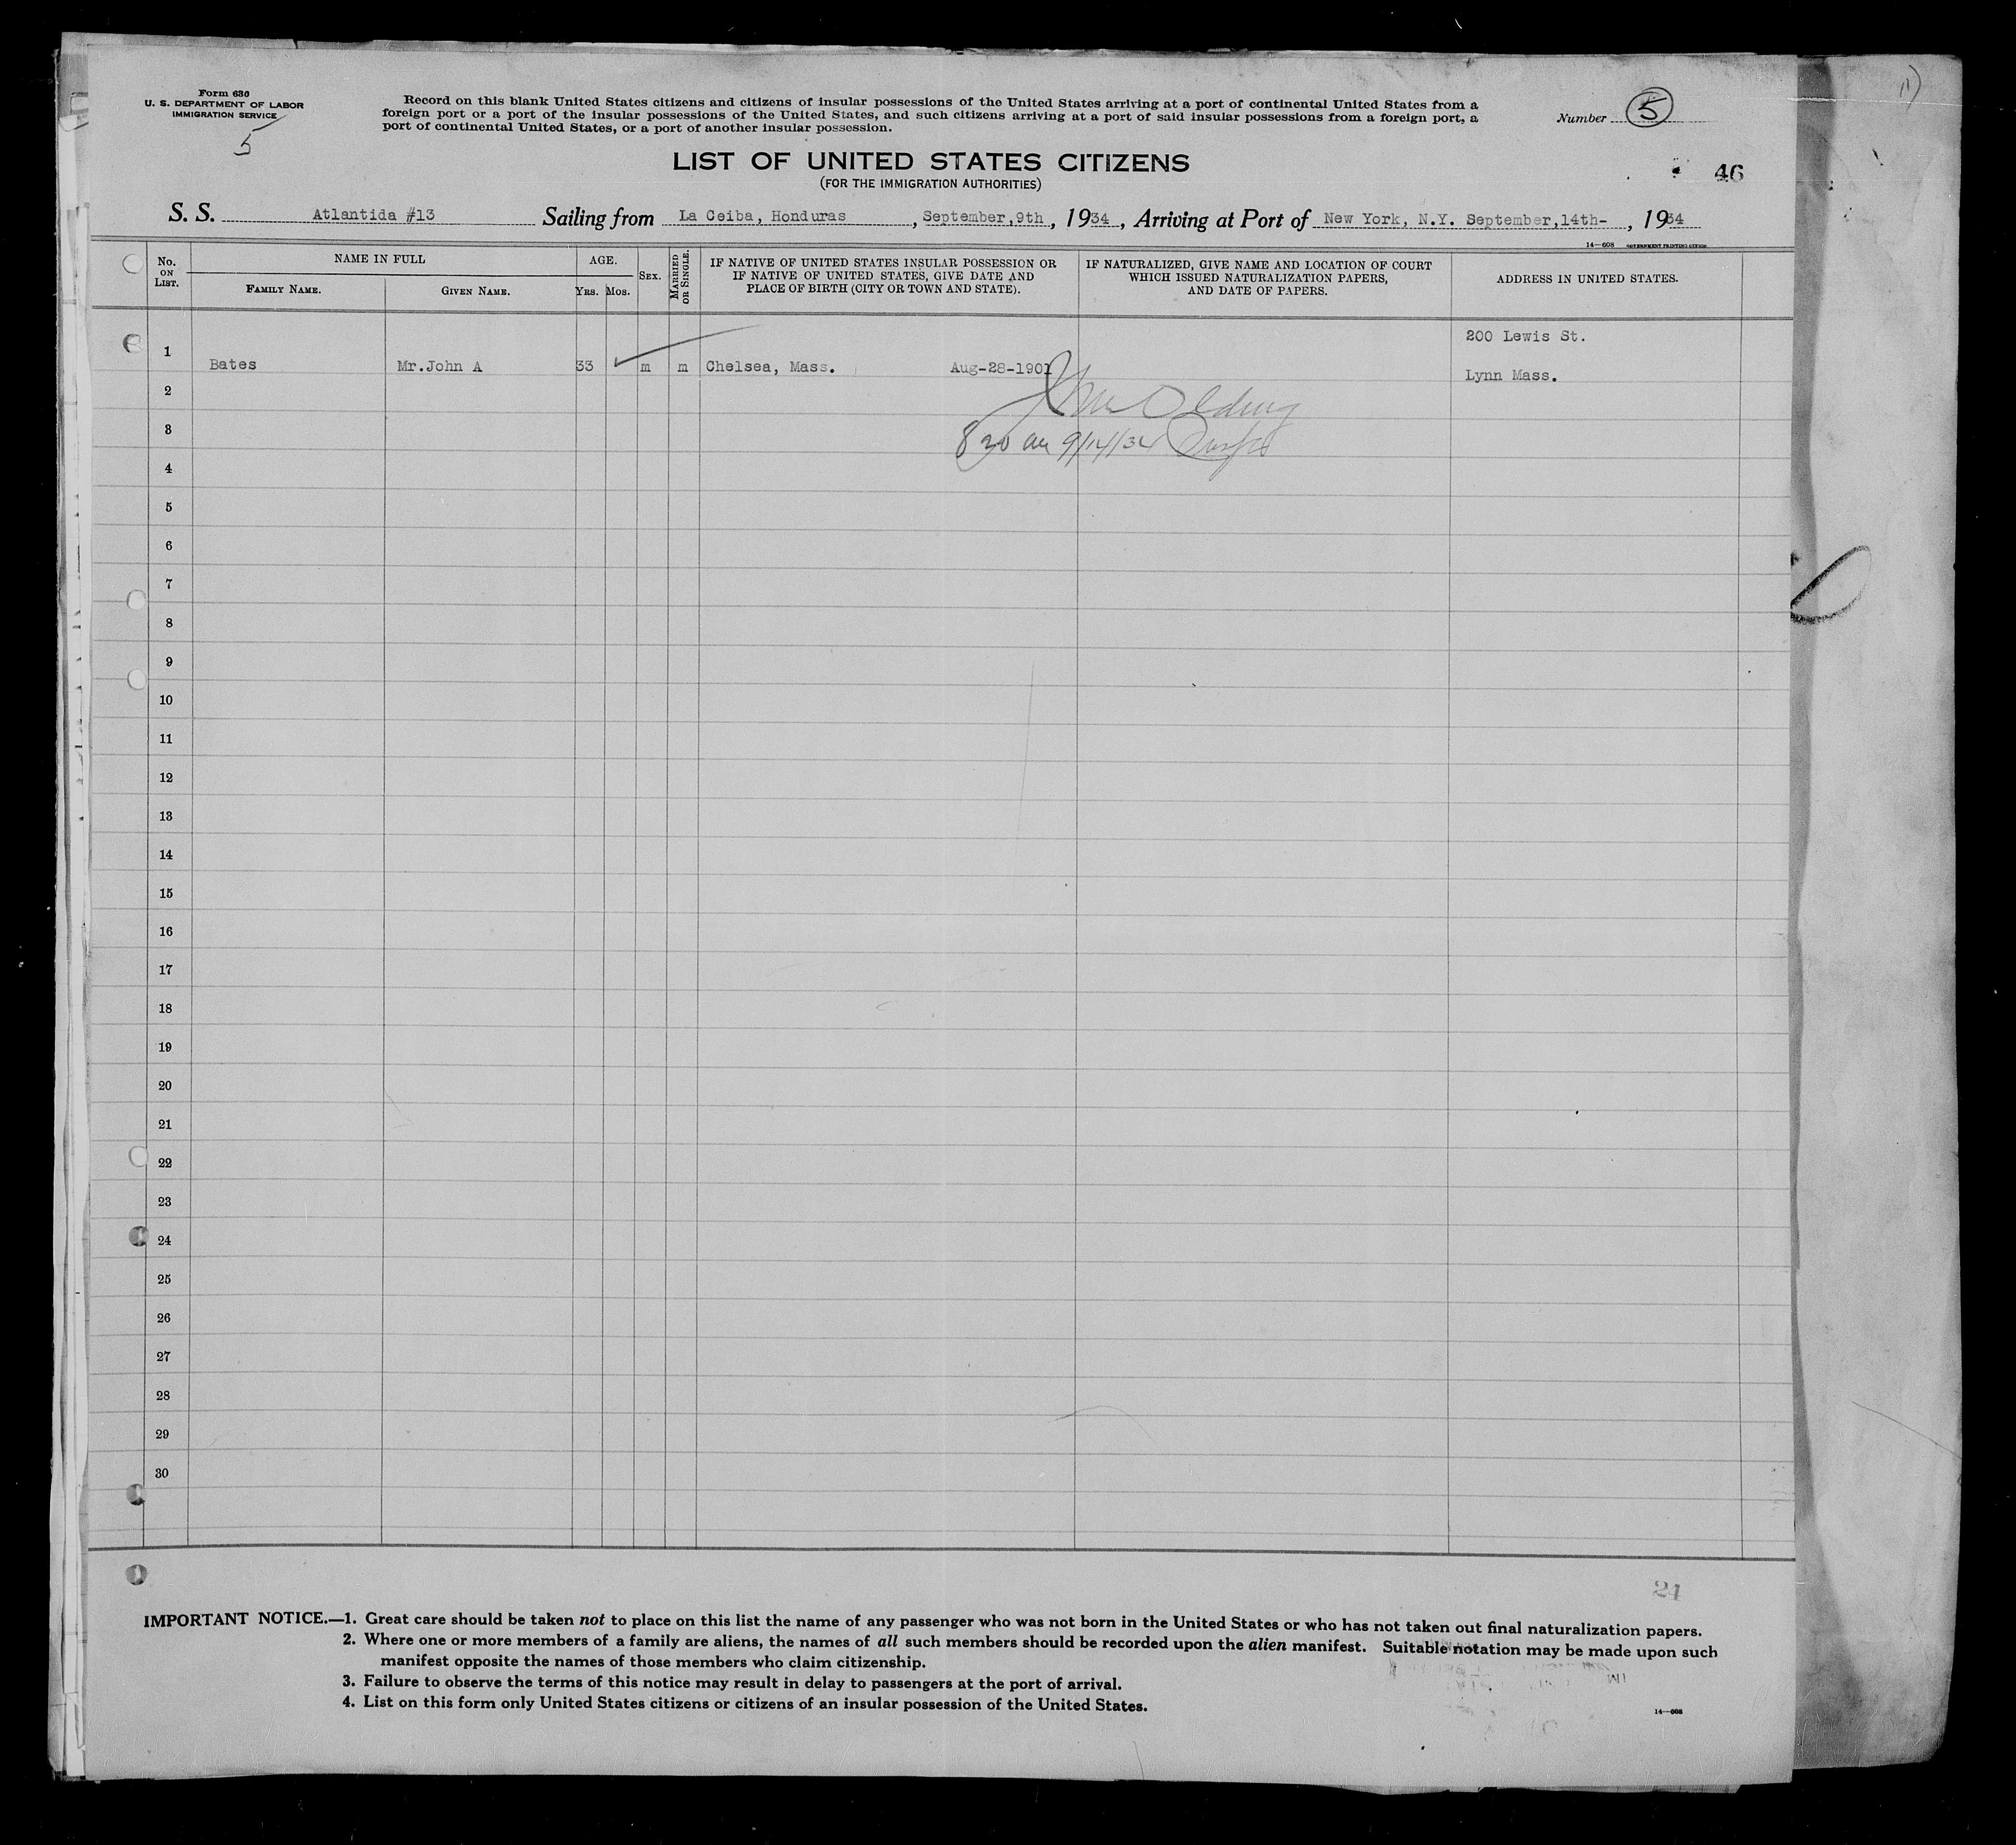 Form 630
U. S. DEPARTMENT OF LABOR
IMMIGRATION SERVICE
5
Record on this blank United States citizens and citizens of insular possessions of the United States arriving at a port of continental United States from a
foreign port or a port of the insular possessions of the United States, and such citizens arriving at a port of said insular possessions from a foreign port, a
port of continental United States, or a port of another insular possession.
Number 5
LIST OF UNITED STATES CITIZENS
(FOR THE IMMIGRATION AUTHORITIES)
46
S. S. Atlantida #13 Sailing from La Ceiba, Honduras, September,9th, 1934, Arriving at Port of New York, N.Y. September,14th-, 1934
14—608 GOVERNMENT PRINTING OFFICE
No. ON LIST.
NAME IN FULL
FAMILY NAME.
GIVEN NAME.
AGE.
YRS. MOS.
SEX.
MARRIED OR SINGLE.
IF NATIVE OF UNITED STATES INSULAR POSSESSION OR
IF NATIVE OF UNITED STATES, GIVE DATE AND
PLACE OF BIRTH (CITY OR TOWN AND STATE).
IF NATURALIZED, GIVE NAME AND LOCATION OF COURT
WHICH ISSUED NATURALIZATION PAPERS,
AND DATE OF PAPERS.
ADDRESS IN UNITED STATES.
200 Lewis St.
1 Bates Mr.John A 33 m m Chelsea, Mass. Aug-28-1901
Lynn Mass.
2
3
8 30 am 9/14/34
4
5
6
7
8
9
10
11
12
13
14
15
16
17
18
19
20
21
22
23
24
25
26
27
28
29
30
21
IMPORTANT NOTICE.—1. Great care should be taken not to place on this list the name of any passenger who was not born in the United States or who has not taken out final naturalization papers.
2. Where one or more members of a family are aliens, the names of all such members should be recorded upon the alien manifest. Suitable notation may be made upon such
manifest opposite the names of those members who claim citizenship.
3. Failure to observe the terms of this notice may result in delay to passengers at the port of arrival.
4. List on this form only United States citizens or citizens of an insular possession of the United States.
14—608